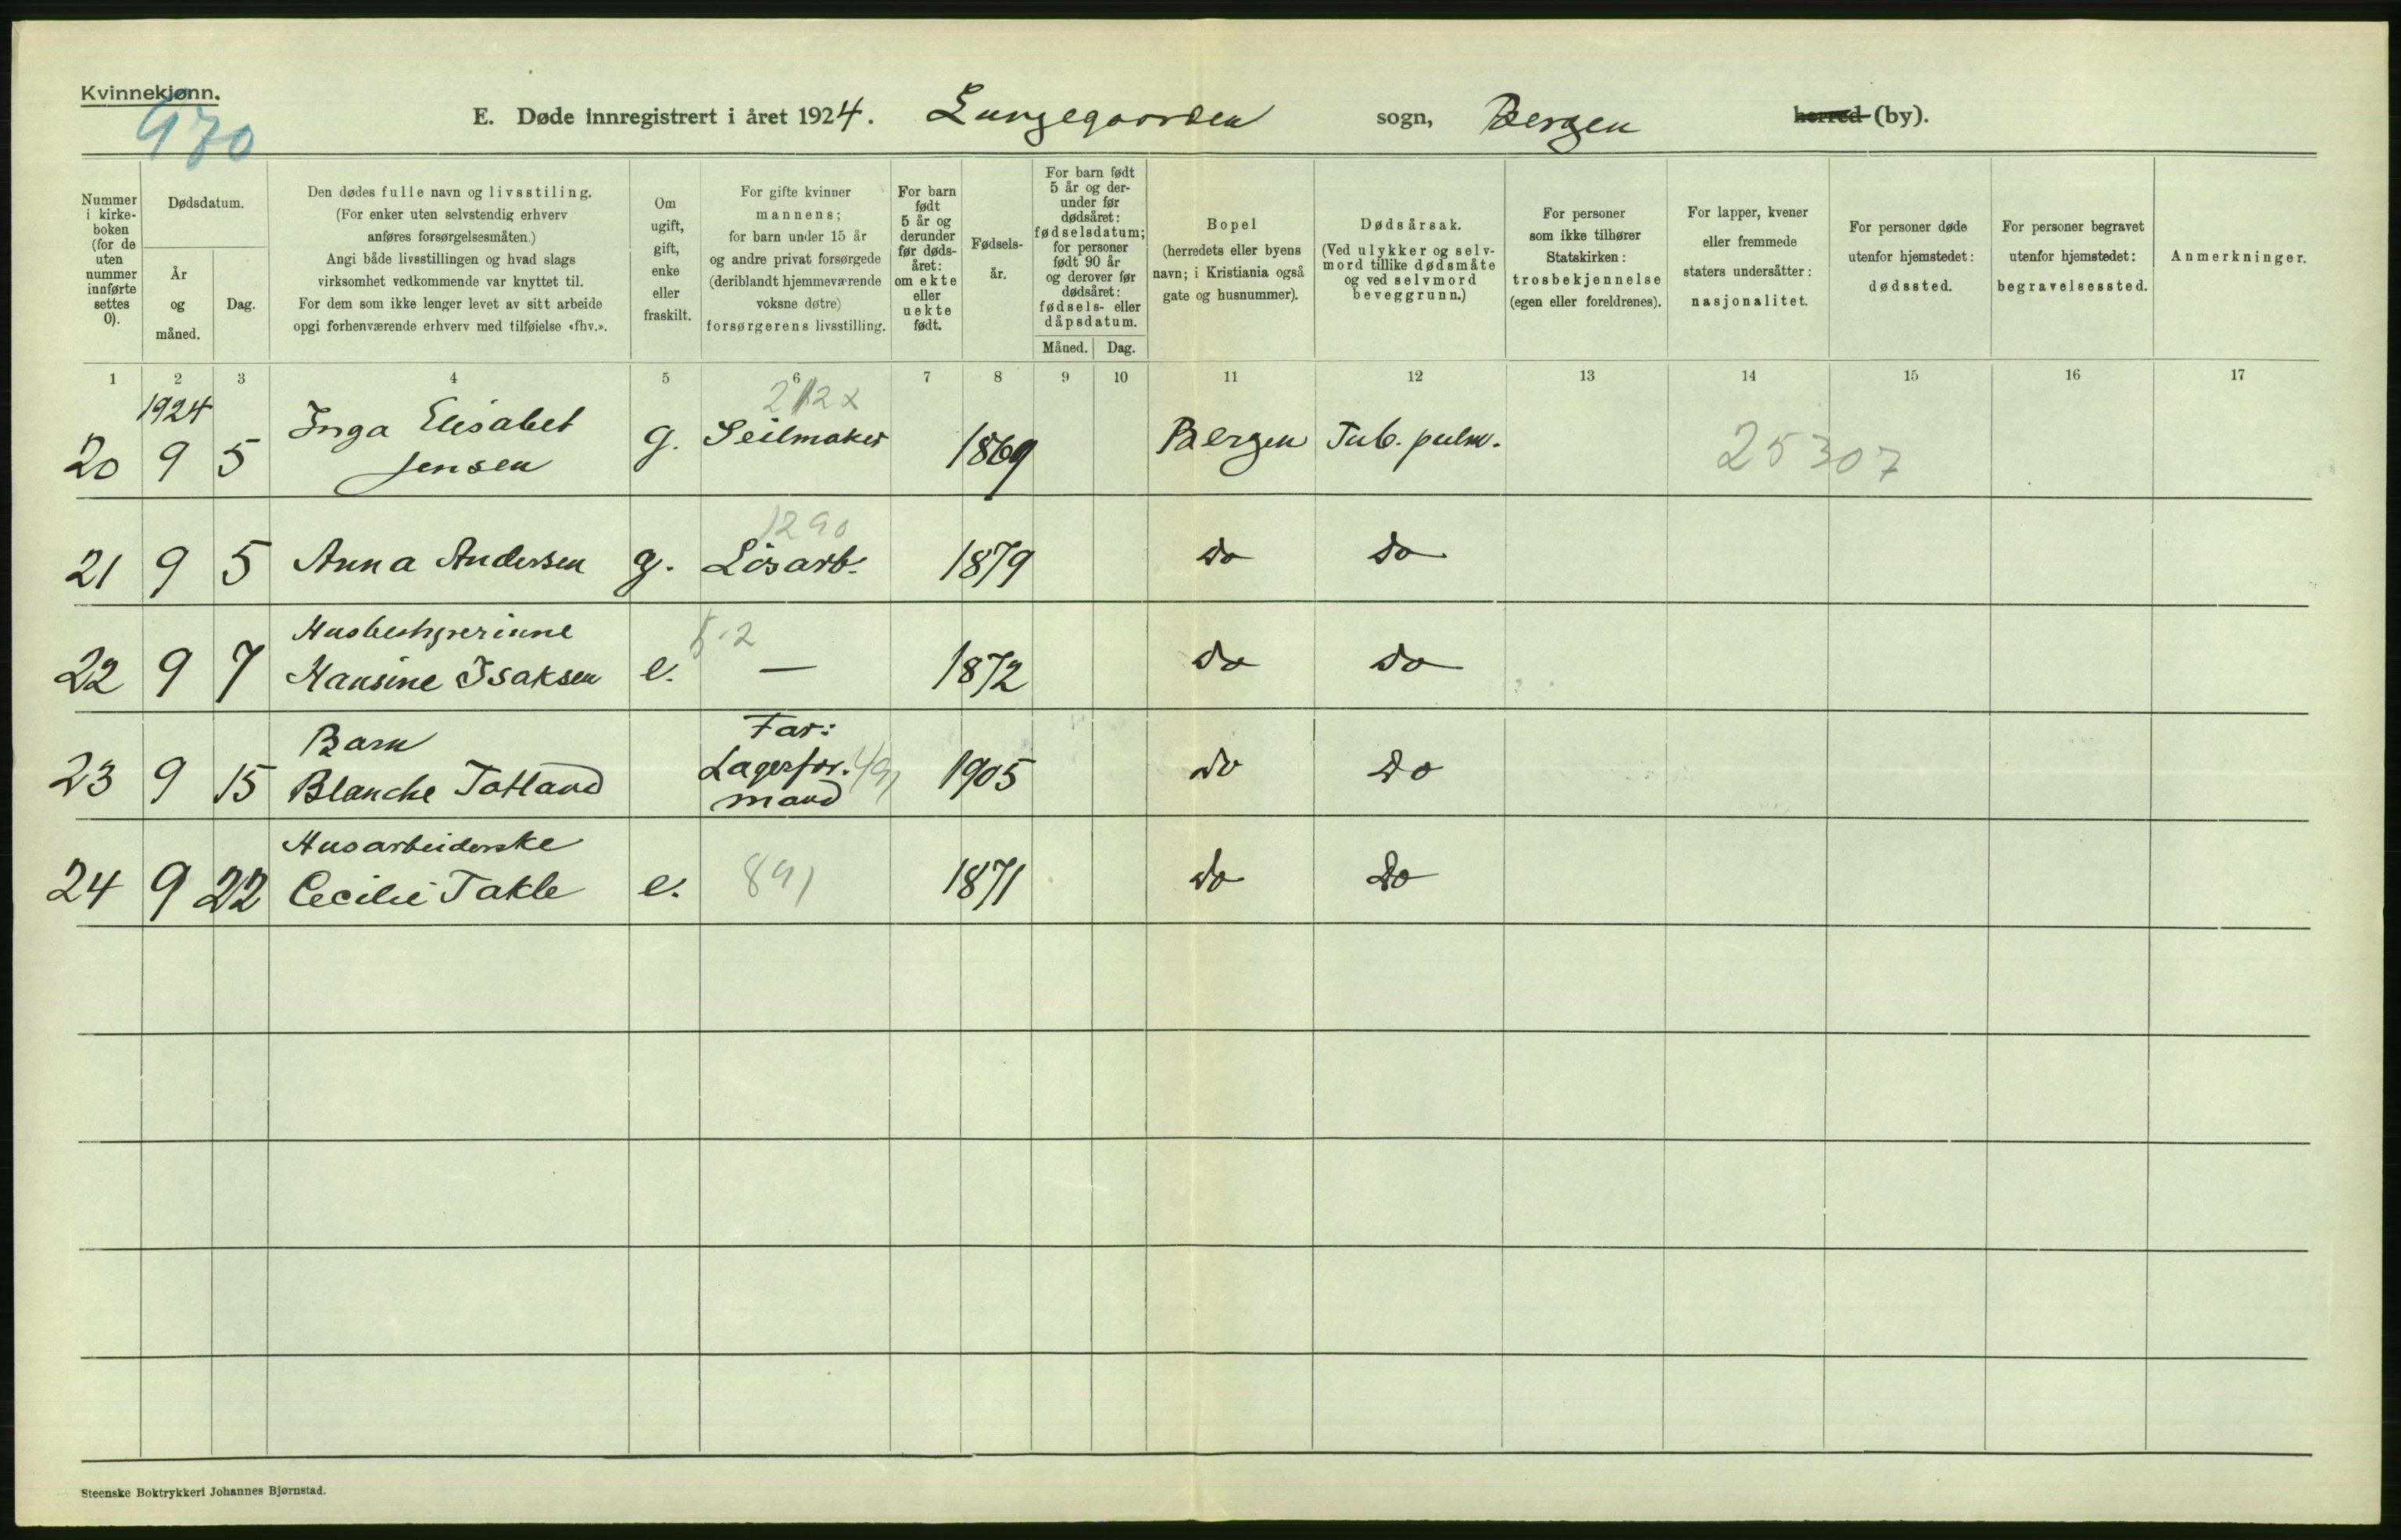 Kvinnekjønn.
970
E. Døde innregistrert i året 1924. Lungegaarden sogn, Bergen herred (by).
Nummer i kirke-boken (for de uten nummer innførte settes 0).
Dødsdatum.
År og måned.
Dag.
Den dødes fulle navn og livsstiling.
(For enker uten selvstendig erhverv
anføres forsørgelsesmåten.)
Angi både livsstillingen og hvad slags
virksomhet vedkommende var knyttet til.
For dem som ikke lenger levet av sitt arbeide
opgi forhenværende erhverv med tilføielse «fhv.».
Om
ugift,
gift,
enke
eller
fraskilt.
For gifte kvinner
mannens;
for barn under 15 år
og andre privat forsørgede
(deriblandt hjemmeværende
voksne døtre)
forsørgerens livsstilling.
For barn
født
5 år og
derunder
før døds-
året:
om ekte
eller
uekte
født.
Fødsels-
år.
For barn født
5 år og der-
under før
dødsåret:
fødselsdatum;
for personer
født 90 år
og derover før
dødsåret:
fødsels- eller
dåpsdatum.
Måned. Dag.
Bopel
(herredets eller byens
navn; i Kristiania også
gate og husnummer).
Dødsårsak.
(Ved ulykker og selv-
mord tillike dødsmåte
og ved selvmord
beveggrunn.)
For personer
som ikke tilhører
Statskirken:
trosbekjennelse
(egen eller foreldrenes).
For lapper, kvener
eller fremmede
staters undersåtter:
nasjonalitet.
For personer døde
utenfor hjemstedet:
dødssted.
For personer begravet
utenfor hjemstedet:
begravelsessted.
Anmerkninger.
1 2 3 4 5 6 7 8 9 10 11 12 13 14 15 16 17
1924
20 9 5 Inga Elisabet Jensen g. Seilmaker 1869 Bergen Tub. pulm. 25307
1290
21 9 5 Anna Andersen g. Løsarb. 1879 do do
Husbestyrerinne
22 9 7 Hansine Isaksen e. — 1872 do do
Barn Far:
23 9 15 Blanche Totland Lagerfor. mand 1905 do do
Husarbeiderske
24 9 22 Cecilie Takle e. 891 1871 do do
Steenske Boktrykkeri Johannes Bjørnstad.